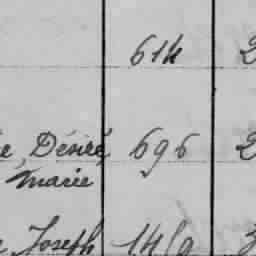 614 2
e, Désiré, 696 2
Marie
e Joseph 1419 3